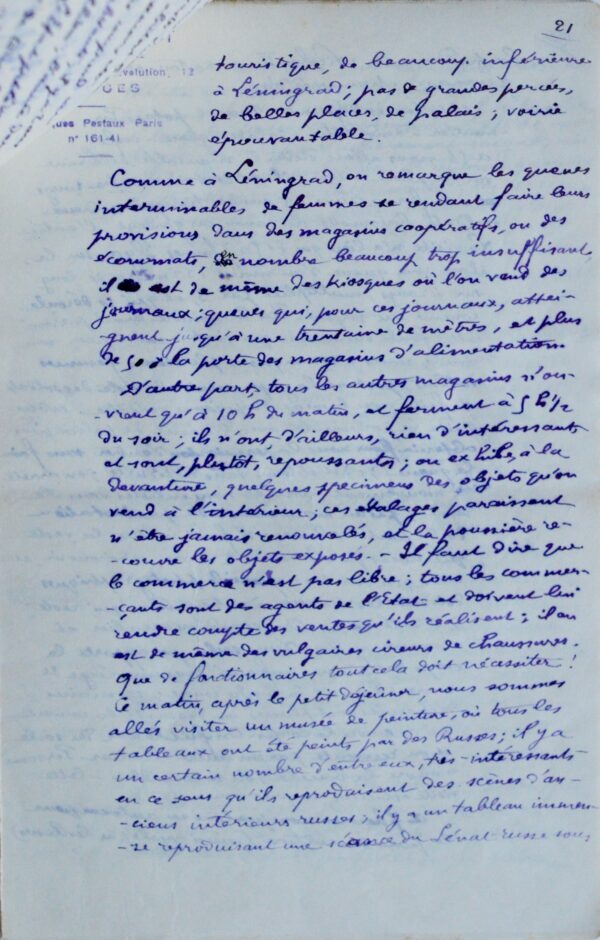 21
évolution, 12
GES
ques Postaux Paris
n° 161-41
touristique, de beaucoup inférieure
à Léningrad ; pas de grandes percées,
de belles places, de palais ; voirie
épouvantable.
Comme à Léningrad, on remarque les queues
interminables de femmes se rendant faire leurs
provisions dans des magasins coopératifs, ou des
économats, en nombre beaucoup trop insuffisant,
il est de même des kiosques où l'on vend des
journaux ; queues qui, pour ces journaux, attei-
gnent jusqu'à une trentaine de mètres, et plus
de 50 à la porte des magasins d'alimentation.
D'autre part, tous les autres magasins n'ou-
-vrant qu'à 10 h du matin, et ferment à 5 h 1/2
du soir ; ils n'ont d'ailleurs, rien d'intéressants
et sont, plutôt, repoussants ; on exhibe, à la
devanture, quelques specimens des objets qu'on
vend à l'intérieur ; ces étalages paraissent
n'être jamais renouvelés, et la poussière re-
-couvre les objets exposés. - Il faut dire que
le commerce n'est pas libre ; tous les commer-
-çants sont des agents de l'Etat et doivent lui
rendre compte des ventes qu'ils réalisent ; il en
est de même des vulgaires cireurs de chaussures.
Que de fonctionnaires tout cela doit nécessiter !
Ce matin, après le petit déjeuner, nous sommes
allés visiter un musée de peinture, où tous les
tableaux ont été peints par des Russes ; il y a
un certain nombre d'entre eux, très-intéressants
en ce sens qu'ils reproduisent des scènes d'an-
-ciens intérieurs russes ; il y a un tableau immen-
-se reproduisant une séance du Sénat russe sous